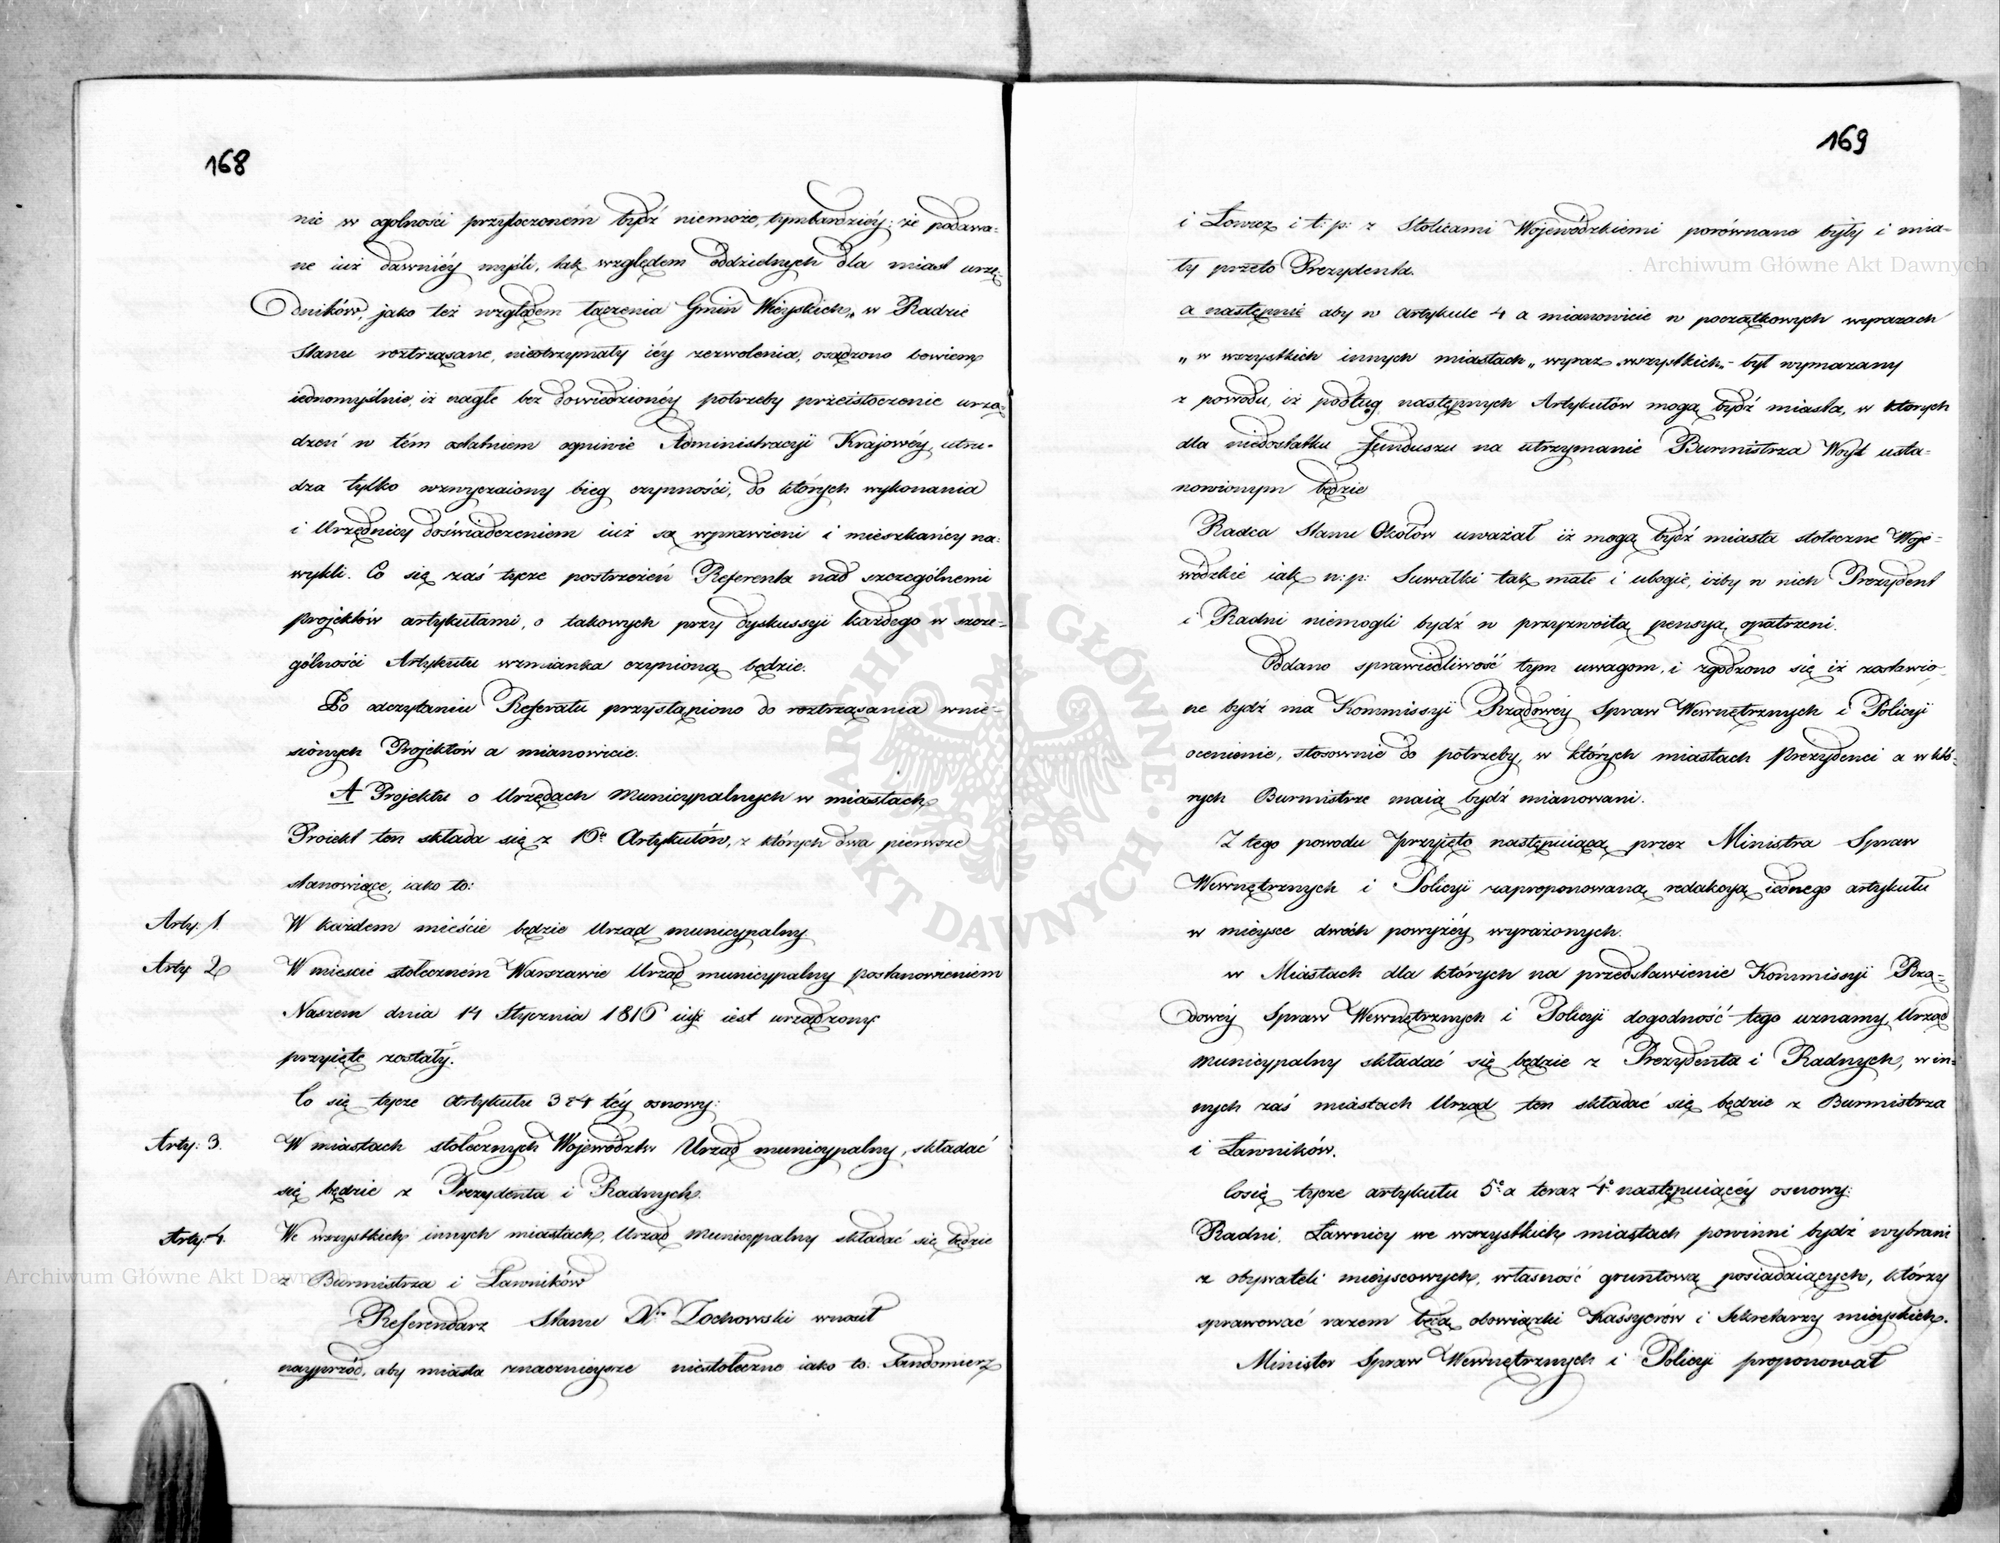 168
nie w ogolności przytoczoném bydź niemoże, tymbardziéy; że podawa-
ne iuż dawniéy myśli, tak względem oddzielnych dla miast urzę-
dników, jako też względem łączenia Gmin Wieyskich, w Radzie
Stanu roztrząsane, nieotrzymały iéy zezwolenia, osądzono bowiem
iednomyślnie, iż nagłe bez dowiedzionéy potrzeby przeistoczenie urzą-
dzeń w tém ostatniem ogniwie Administracyi Krajowéy, utru-
dza tylko wzwyczaiony bieg czynności, do których wykonania
i Urzędnicy doświadczeniem iuż są wprawieni i mieszkańcy na-
wykli. Co się zaś tycze postrzeżeń Referenta nad szczególnemi
projektów artykułami, o takowych przy dyskussyi każdego w szcze-
gólności Artykułu wzmianka czynioną będzie.
Po odczytaniu Referatu przystąpiono do roztrząsania wnie-
sionych Projektów a mianowicie.
A Projektu o Urzędach Municypalnych w miastach
Proiekt ten składa się z 10u Artykułów, z których dwa pierwsze
stanowiące, iako to:
Arty: 1. W każdem mieście będzie Urząd municypalny
Arty 2 W mieście stołeczném Warszawie Urząd municypalny postanowieniem
Naszem dnia 14 Stycznia 1816 iuż iest urządzony
przyięte zostały.
Co się tycze Artykułu 3 i 4 téy osnowy:
Arty: 3. W miastach stołecznych Województw Urząd municypalny, składać
się będzie z Prezydenta i Radnych.
Arty: 4. We wszystkich innych miastach, Urząd Municypalny składać się będzie
z Burmistrza i Ławników
Referendarz Stanu Xże Zochowski wnosił
nayprzód, aby miasta znacznieysze niestołeczne iako to: Sandomierz
169
i Łowicz i t: p: z Stolicami Wojewódzkiemi porównane były i mia-
ły przeto Prezydenta.
a następnie aby w Artykule 4 a mianowicie w początkowych wyrazach
„w wszystkich innych miastach„ wyraz „wszystkich„ był wymazany
z powodu, iż podług następnych Artykułów mogą bydź miasta, w których
dla niedostatku funduszu na utrzymanie Burmistrza Woyt usta-
nowionym będzie
Radca Stanu Okołow uważał iż mogą bydź miasta stołeczne Woje-
wódzkie iak n: p: Suwałki tak małe i ubogie, iżby w nich Prezydent
i Radni niemogli bydź w przyzwoitą pensyą opatrzeni.
Oddano sprawiedliwość tym uwagom, i zgodzono się iż zostawio-
ne bydź ma Kommissyi Rządowey Spraw Wewnętrznych i Policyi
ocenienie, stosownie do potrzeby, w których miastach Prezydenci a w któ-
rych Burmistrze maią bydź mianowani.
Z tego powodu przyjęto następuiącą przez Ministra Spraw
Wewnętrznych i Policyi zaproponowaną redakcyą iednego artykułu
w mieysce dwóch powyżéy wyrażonych.
w Miastach dla których na przedstawienie Kommissyi Rzą-
dowéy Spraw Wewnętrznych i Policyi dogodność tego uznamy, Urząd
Municypalny składać się będzie z Prezydenta i Radnych, w in-
nych zaś miastach Urząd ten składać się będzie z Burmistrza
i Ławników.
Cosię tycze artykułu 5o a teraz 4o następuiącéy osnowy:
Radni, Ławnicy we wszystkich miastach powinni bydź wybrani
z obywateli mieyscowych, własność gruntową posiadziących, którzy
sprawować razem będą obowiązki Kassyerów i Sekretarzy mieyskich.
Minister Spraw Wewnętrznych i Policyi proponował
Archiwum Główne Akt Dawnych
Archiwum Główne Akt Dawnych
ARCHIWUM GŁÓWNE AKT DAWNYCH